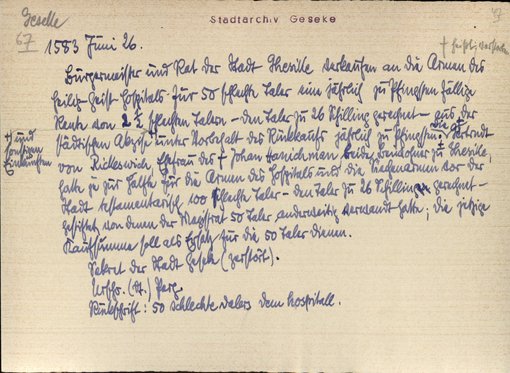 Geseke
67
Stadtarchiv Geseke
47
1583 Juni 26.
Bürgermeister und Rat der Stadt Ghesike verkaufen an die Armen des
Heilig-Geist-Hospitals für 50 schlechte Taler eine jährlich zu Pfingsten fällige
Rente von 2 1/2 schlechten Talern – den Taler zu 26 Schilling gerechnet – aus der
städtischen Akzise + unter Vorbehalt des Rückkaufs jährlich zu Pfingsten.
+ und sonstigen Einkünften
von Rickeswich, Ehefrau des + Johan Hanichman, beide Einwohner zu Ghesike,
hatte je zur Hälfte für die Armen des Hospitals und die Siechenarmen vor der
Stadt testamentarisch 100 schlechte Taler – den Taler zu 26 Schilling gerechnet –
gestiftet, von denen der Magistrat 50 Taler anderweitig verwandt hatte; die jetzige
Kaufsumme soll als Ersatz für die 50 Taler dienen.
Sekret der Stadt Geseke (zerstört).
Urschr. (dt.) Perg.
Rückschrift: 50 schlechte dalers dem hospitall.